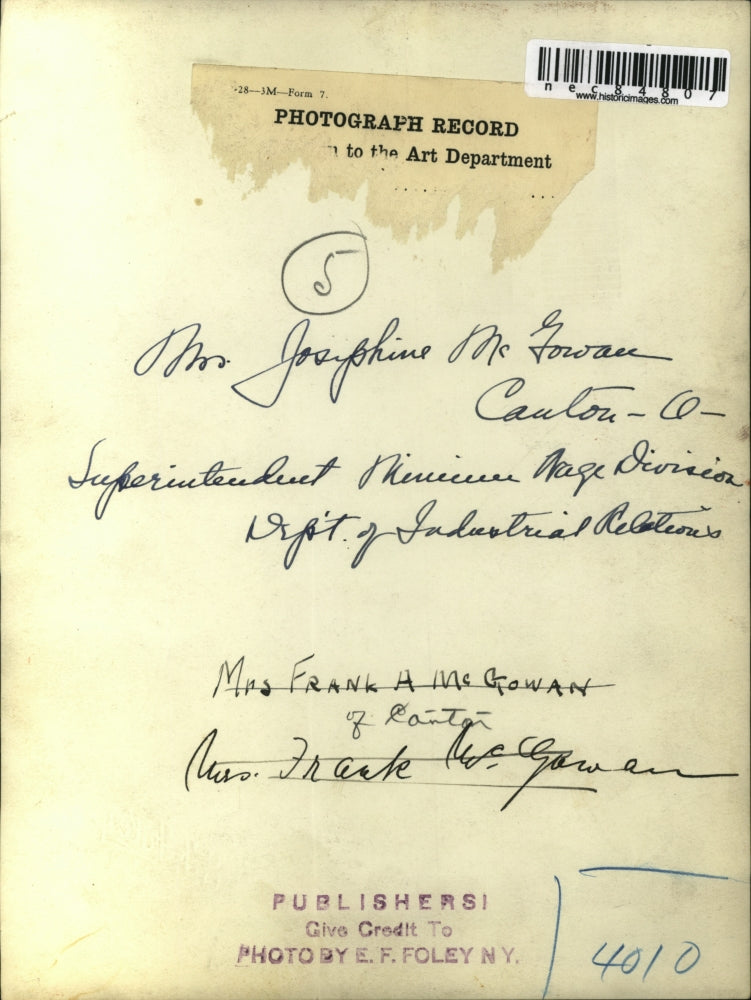 nec84807
www.historicimages.com
-28—3M—Form 7.
PHOTOGRAPH RECORD
to the Art Department
5
Mrs. Josephine McGowan
Canton - O -
Superintendent Minimum Wage Division
Dept. of Industrial Relations
MRS FRANK H MCGOWAN
of Canton
Mrs. Frank McGowan
PUBLISHERS!
Give Credit To
PHOTO BY E. F. FOLEY N Y.
4010